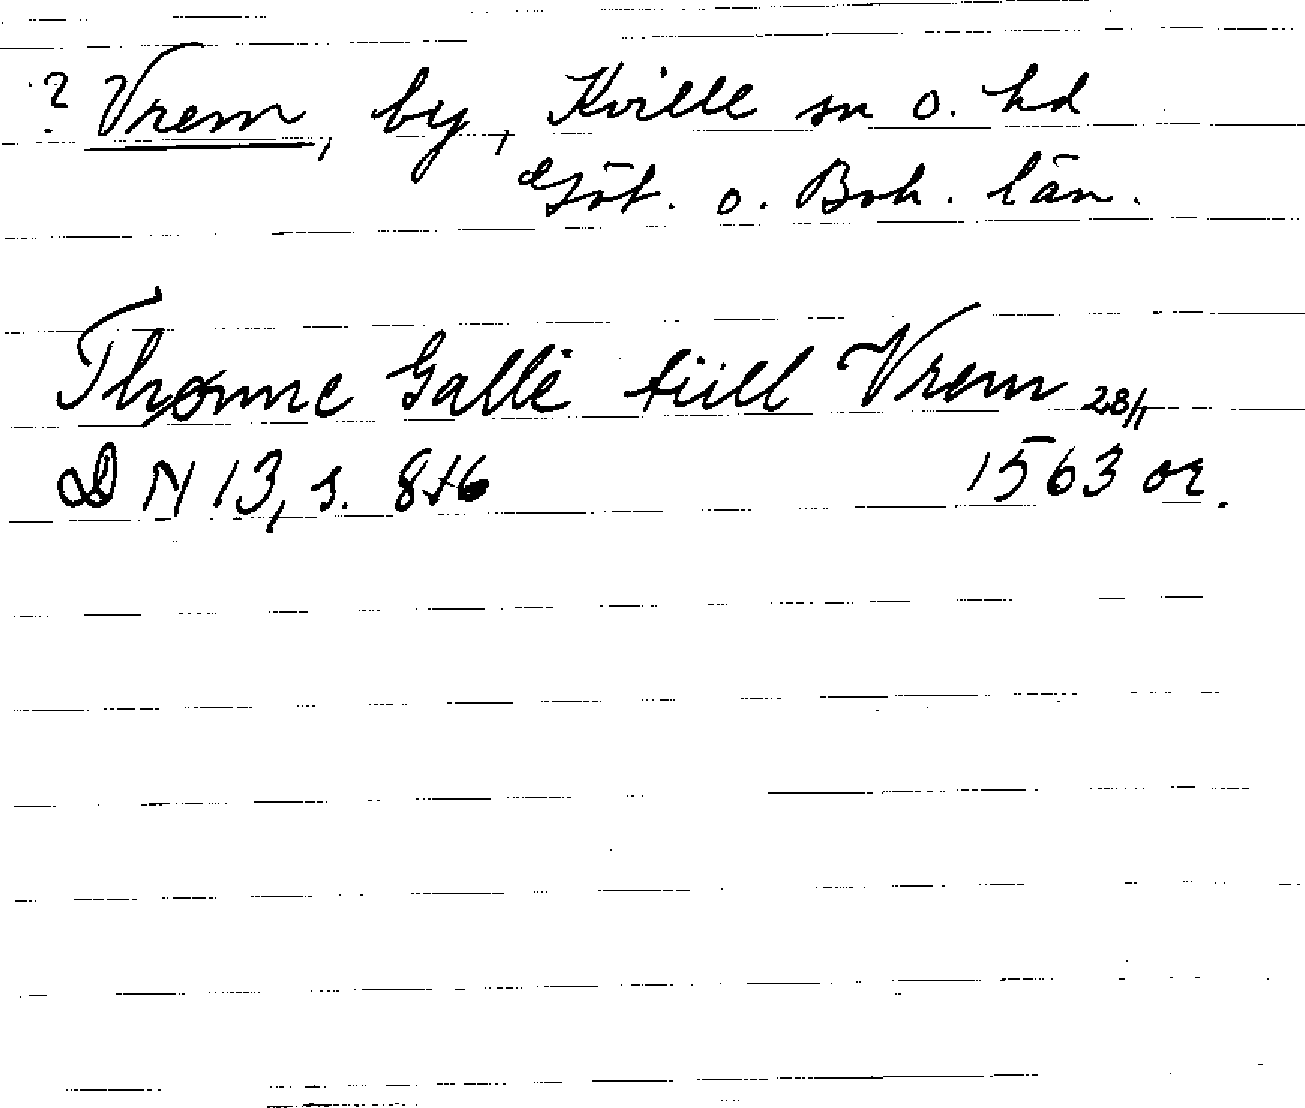 ? Vrem, by, Kville sn o. hd
Göt. o. Boh. län.
Thrønne Galle tiill Vrem 28/1
DN 13, s. 846 1563 or.